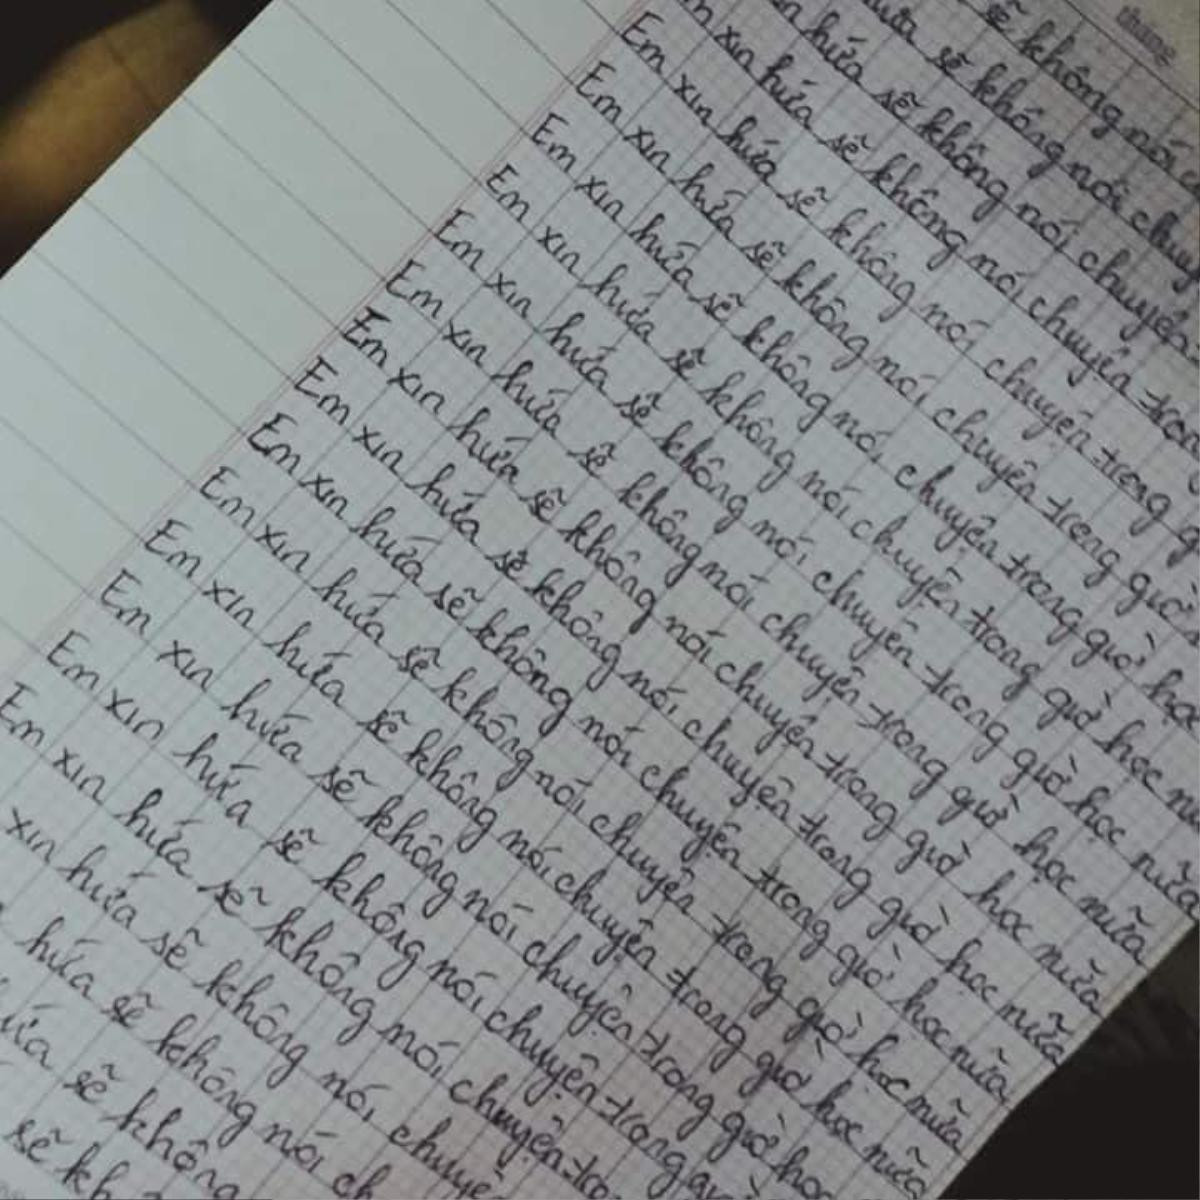 tháng
sẽ không nói
hứa sẽ không nói chuy
hứa sẽ không nói chuyện
xin hứa sẽ không nói chuyện trong
Em xin hứa sẽ không nói chuyện trong g
Em xin hứa sẽ không nói chuyện trong giờ
Em xin hứa sẽ không nói chuyện trong giờ học
Em xin hứa sẽ không nói chuyện trong giờ học n
Em xin hứa sẽ không nói chuyện trong giờ học nữa
Em xin hứa sẽ không nói chuyện trong giờ học nữa
Em xin hứa sẽ không nói chuyện trong giờ học nữa
Em xin hứa sẽ không nói chuyện trong giờ học nữa
Em xin hứa sẽ không nói chuyện trong giờ học nữa
Em xin hứa sẽ không nói chuyện trong giờ học nữa
Em xin hứa sẽ không nói chuyện trong giờ học nữa
Em xin hứa sẽ không nói chuyện trong giờ học
Em xin hứa sẽ không nói chuyện trong giờ
Em xin hứa sẽ không nói chuyện tro
xin hứa sẽ không nói chuyệ
hứa sẽ không nói ch
ứa sẽ không
sẽ kh